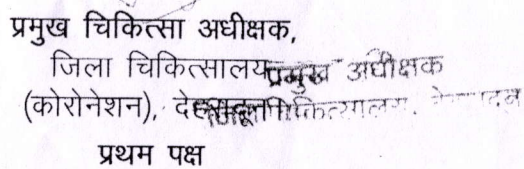 प्रमुख चिकित्सा अधीक्षक,
जिला चिकित्सालय प्रमुख अधीक्षक
(कोरोनेशन), देहरादून
प्रथम पक्ष